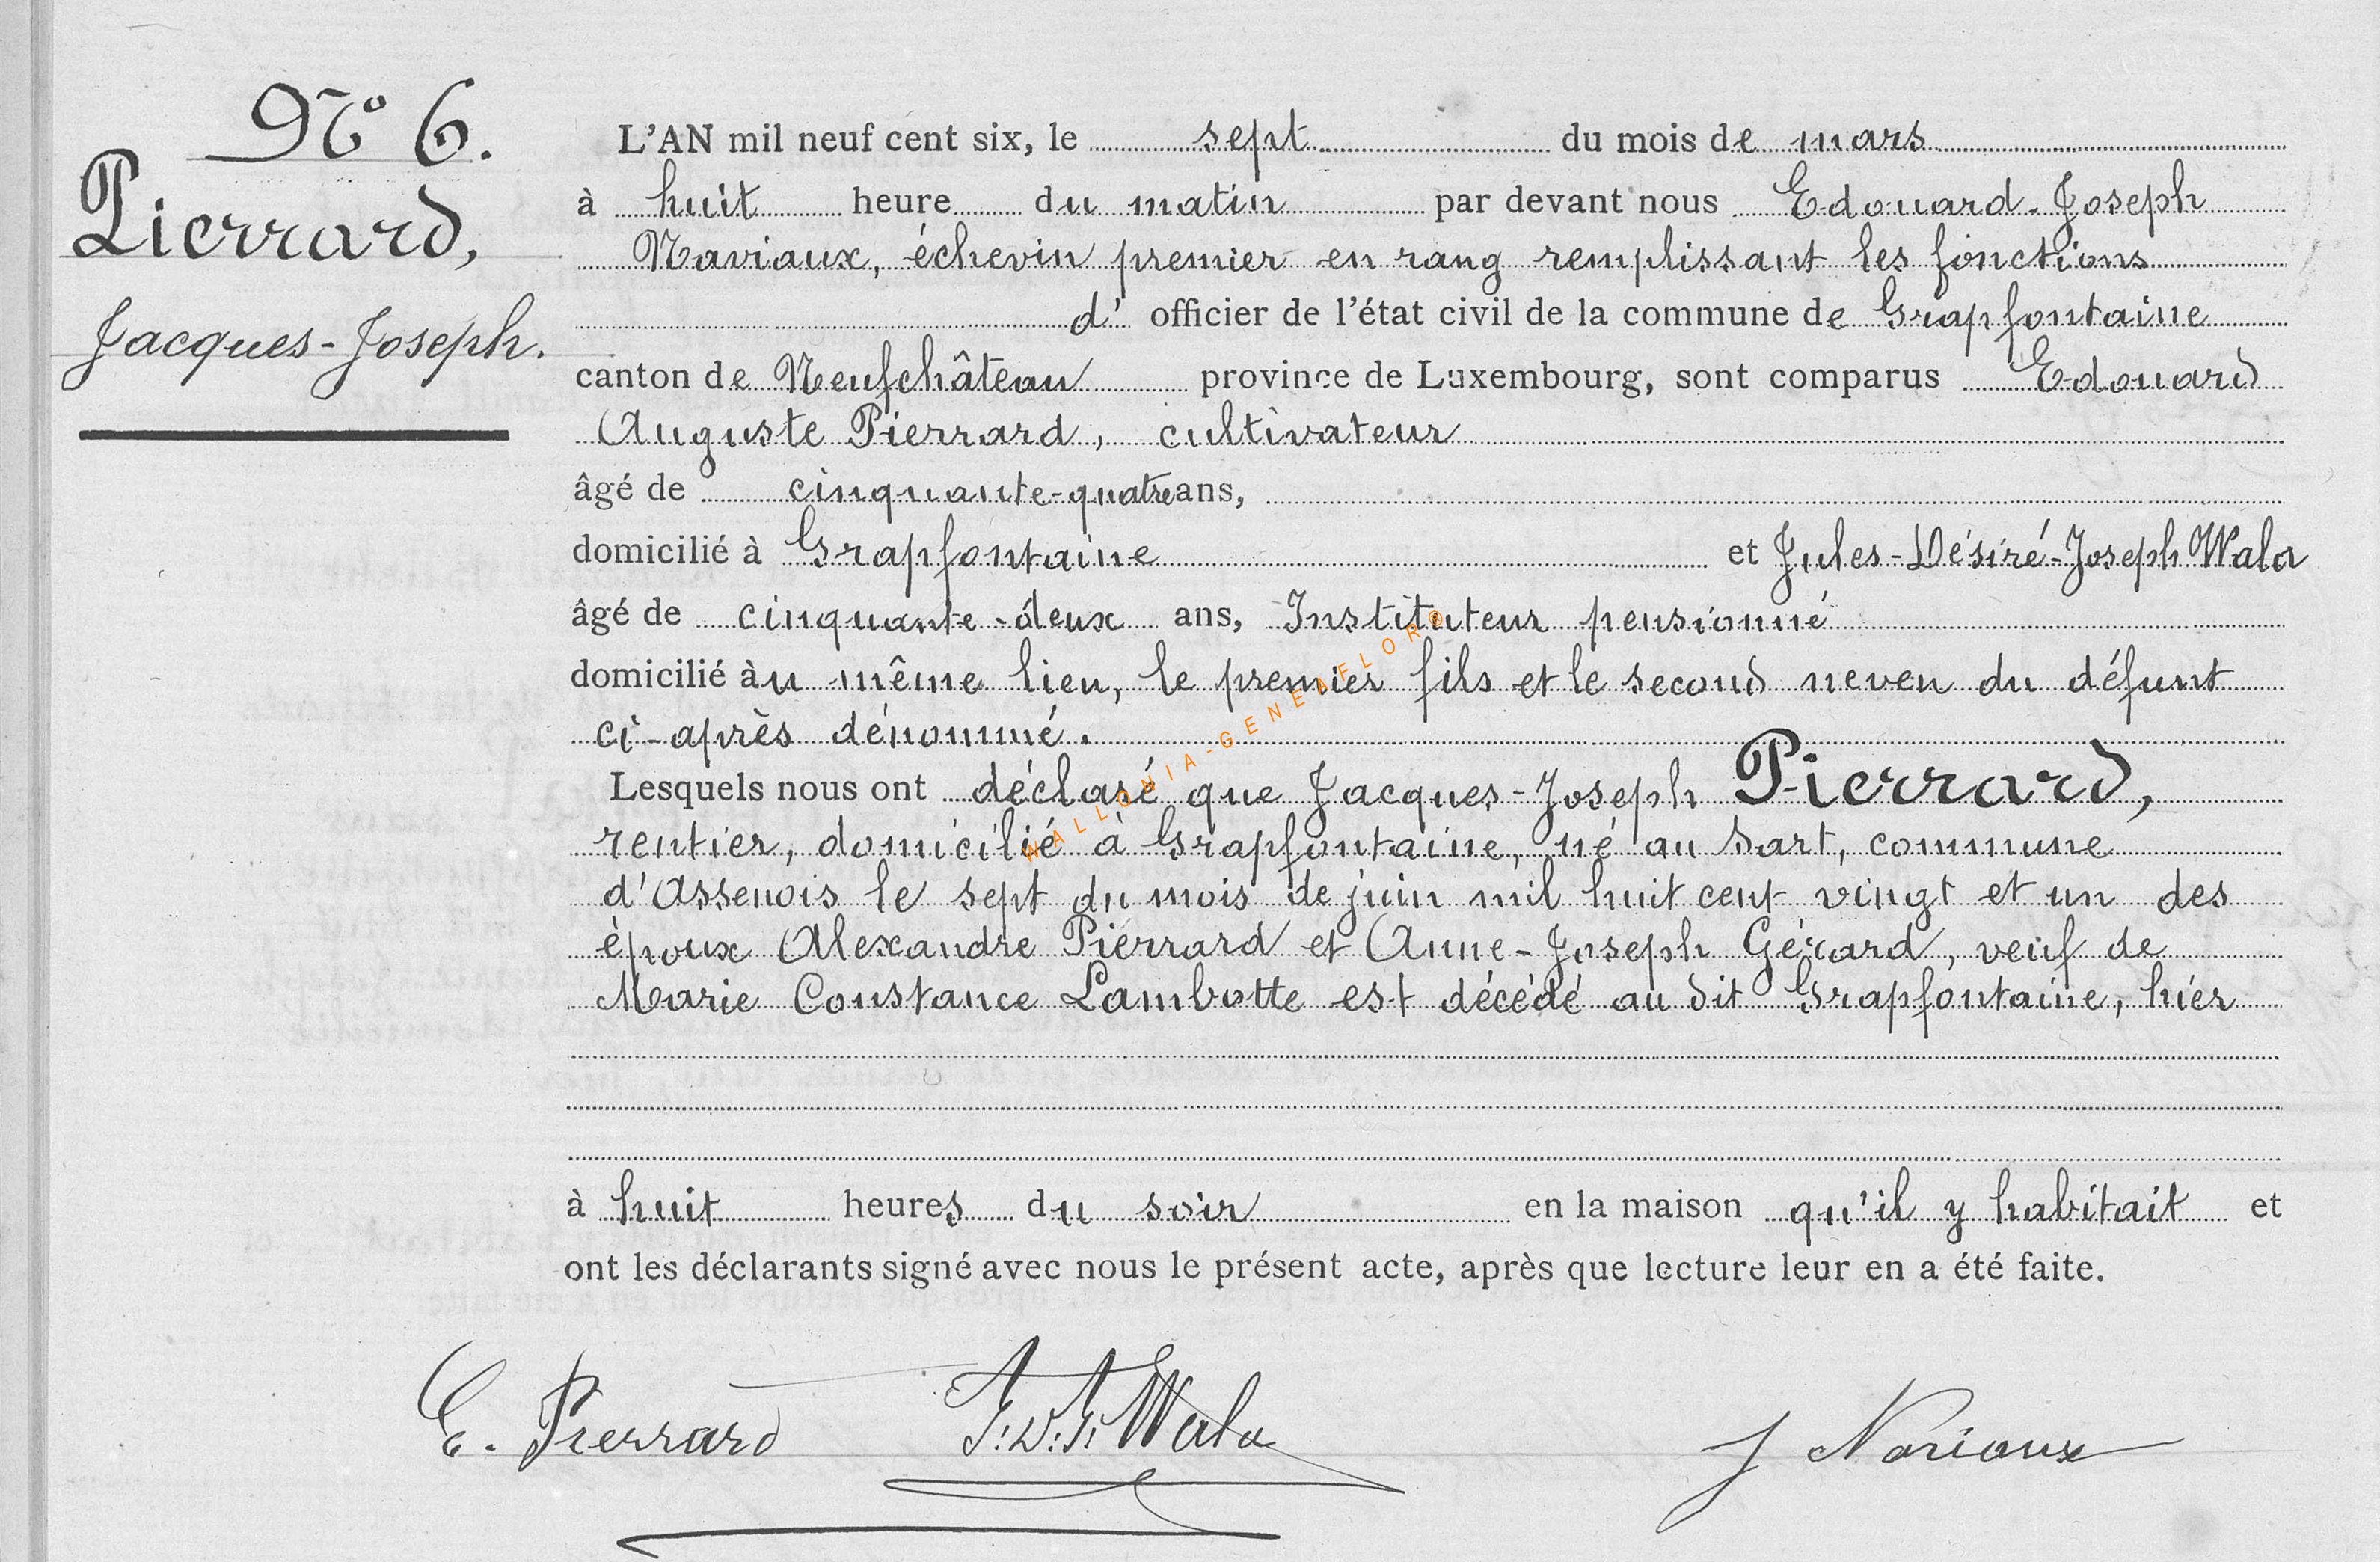 N° 6.
Pierrard,
Jacques-Joseph.
L'AN mil neuf cent six, le sept du mois de mars
à huit heure du matin par devant nous Edouard-Joseph
Naviaux, échevin premier en rang remplissant les fonctions
d' officier de l'état civil de la commune de Grapfontaine
canton de Neufchâteau province de Luxembourg, sont comparus Edouard
Auguste Pierrard, cultivateur
âgé de cinquante-quatre ans,
domicilié à Grapfontaine et Jules-Désiré-Joseph Wala
âgé de cinquante-deux ans, Instituteur pensionné
domicilié àu même lieu, le premier fils et le second neveu du défunt
ci-après dénommé.
Lesquels nous ont déclaré que Jacques-Joseph Pierrard,
rentier, domicilié à Grapfontaine, né au Sart, commune
d'Assenois le sept du mois de juin mil huit cent vingt et un des
époux Alexandre Pierrard et Anne-Joseph Gérard, veuf de
Marie Constance Lambotte est décédé au dit Grapfontaine, hier
à huit heures du soir en la maison qu'il y habitait et
ont les déclarants signé avec nous le présent acte, après que lecture leur en a été faite.
E. Pierrard J.D.J. Wala J Naviaux
WALLONIA-GENEAFLOR®